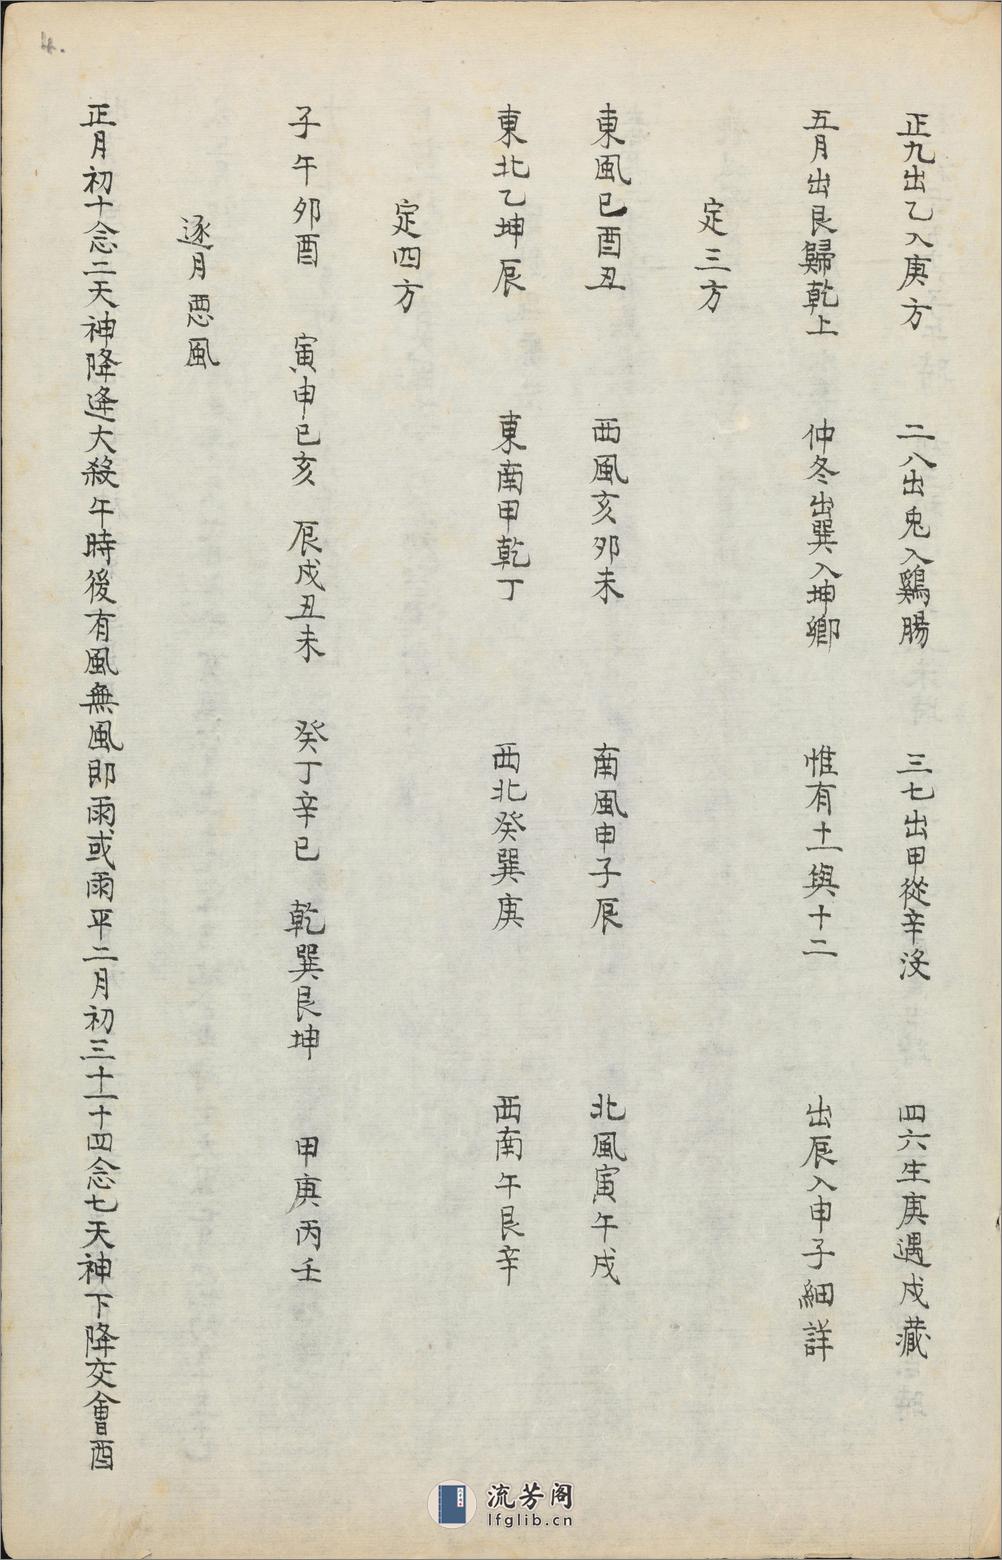 4.
正九出乙入庚方　二八出兎入鷄腸　三七出甲從辛沒　四六生庚遇戌藏
五月出艮歸乾上　仲冬出巽入坤鄉　惟有十一與十二　出辰入申子細詳
定三方
東風巳酉丑　西風亥卯未　南風申子辰　北風寅午戌
東北乙坤辰　東南甲乾丁　西北癸巽庚　西南午艮辛
定四方
子午卯酉　寅申巳亥　辰戌丑未　癸丁辛巳　乾巽艮坤　甲庚丙壬
逐月恶風
正月初十念二天神降逢大殺午時後有風無風即雨或雨平二月初三十一十四念七天神下降交會酉
流芳阁
lfglib.cn